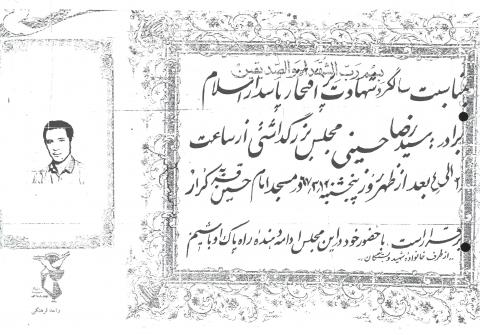 بسم رب الشهداء و الصدیقین
بمناسبت سالگرد شهادت پر افتخار پاسدار اسلام
برادر: سید رضا حسینی مجلس بزرگداشتی از ساعت
۲ الی ۴ بعد از ظهر روز پنجشنبه در مسجد امام حسین قریه کراز
برقرار است. با حضور خود در این مجلس ادامه دهنده راه پاک او باشیم
..از طرف خانواده شهید و بستگان..
واحد فرهنگی